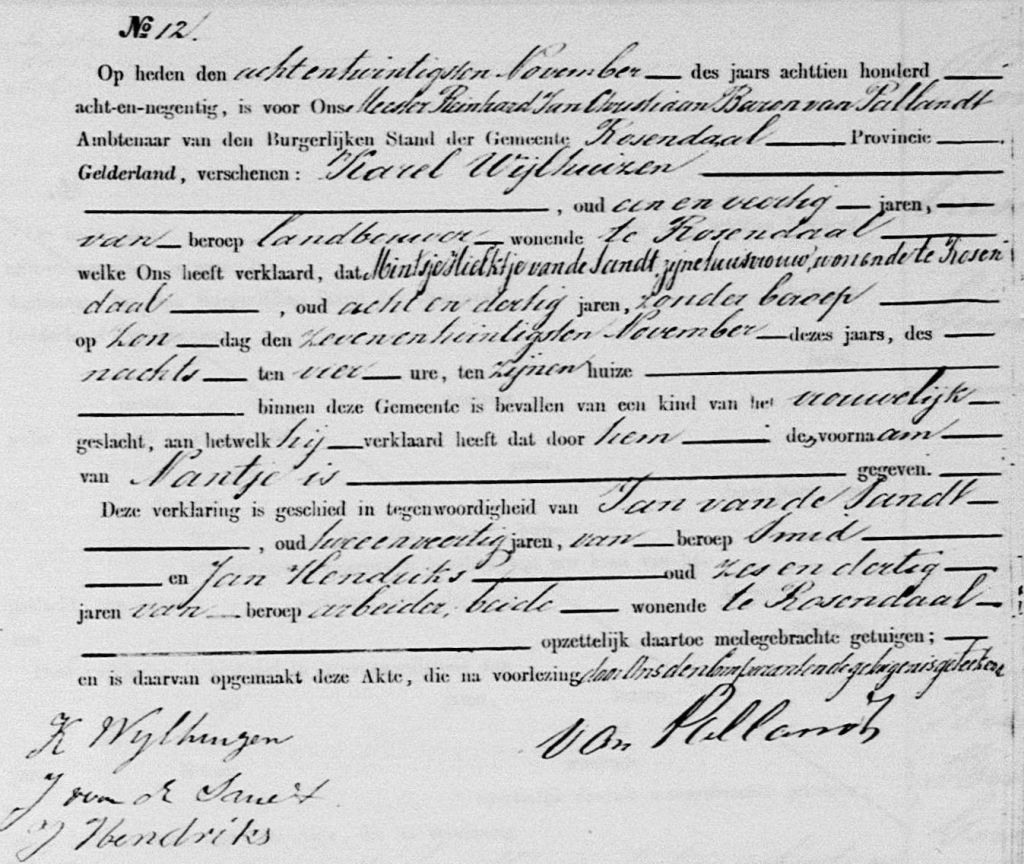 No 12.
Op heden den achtentwintigsten November des jaars achttien honderd
acht-en-negentig, is voor Ons Meester Reinhard Jan Christiaan Baron van Pallandt
Ambtenaar van den Burgerlijken Stand der Gemeente Rosendaal Provincie
Gelderland, verschenen: Karel Wijlhuizen
, oud een en veertig jaren,
van beroep landbouwer wonende te Rosendaal
welke Ons heeft verklaard, dat Mintje Hielktje van de Sandt, zijne huisvrouw, wonende te Rosen
daal , oud acht en dertig jaren, zonder beroep
op Zon dag den zevenentwintigsten November dezes jaars, des
nachts ten vier ure, ten zijnen huize
binnen deze Gemeente is bevallen van een kind van het vrouwelijk
geslacht, aan hetwelk hij verklaard heeft dat door hem de voornaam
van Nantje is gegeven.
Deze verklaring is geschied in tegenwoordigheid van Jan van de Sandt
, oud twee en veertig jaren, van beroep Smid
en Jan Hendriks oud zes en dertig
jaren van beroep arbeider, beide wonende te Rosendaal
opzettelijk daartoe medegebrachte getuigen;
en is daarvan opgemaakt deze Akte, die na voorlezing door Ons den comparant en de getuigen is geteekend
K Wylhuizen
van Pallandt
J van de Sandt
J Hendriks